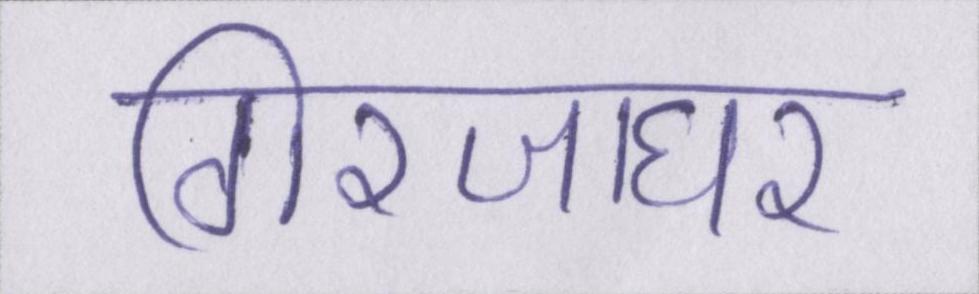 गिरजाघर